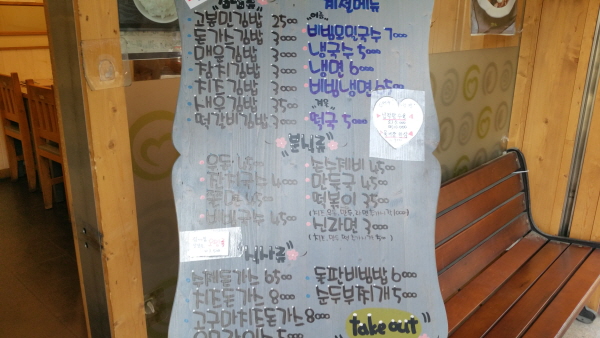 계절메뉴
고봉민김밥 2500
돈가스김밥 3000
매운김밥 3000
참치김밥 3000
치즈김밥 3000
새우김밥 3500
떡갈비김밥 3000
여름
비빔모밀국수 7000
냉국수 5000
냉면 6000
비빔냉면 6500
겨울
떡국 5000
"분식류"
우동
잔치국수 4000
쫄면 4500
비빔국수 4500
손수제비 4500
만두국 4500
떡볶이 3500
신라면 3000
"식사류"
수제돈가스 6500
치즈돈가스 8000
고구마치즈돈가스 8000
돌판비빔밥 6000
순두부찌개 5000
"take out"